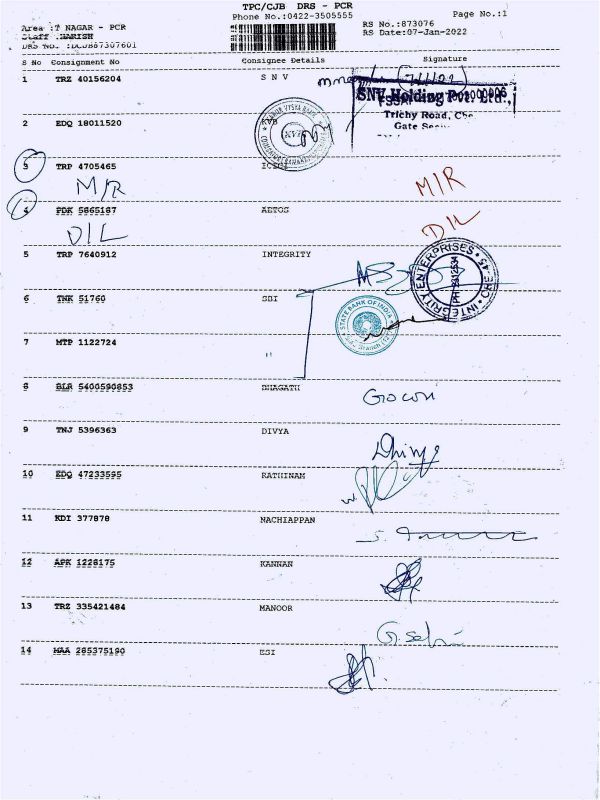 TPC/CJB DRS - PCR
Phone No.:0422-3505555
Page No.:1
Area :T NAGAR - PCR
Staff :HARISH
DRS No. :DCJB87307601
RS No.:873076
RS Date:07-Jan-2022
S No Consignment No Consignee Details Signature
1 TRZ 40156204 S N V
SNV Holding Pvt. Ltd.,
Trichy Road,
Gate
2 EDQ 18011520 KVB
KVB
3 TRP 4705465 ICICI
M/R M/R
4 PDK 5865187 AETOS
D/L D/L
5 TRP 7640912 INTEGRITY
INTEGRITY ENTERPRISES
6 TNK 51760 SBI
STATE BANK OF INDIA
7 MTP 1122724 "
8 BLR 5400590853 BHAGATH
Gowri
9 TNJ 5396363 DIVYA
10 EDQ 47233595 RATHINAM
11 KDI 377878 NACHIAPPAN
12 APK 1228175 KANNAN
13 TRZ 335421484 MANOOR
14 MAA 285375190 ESI